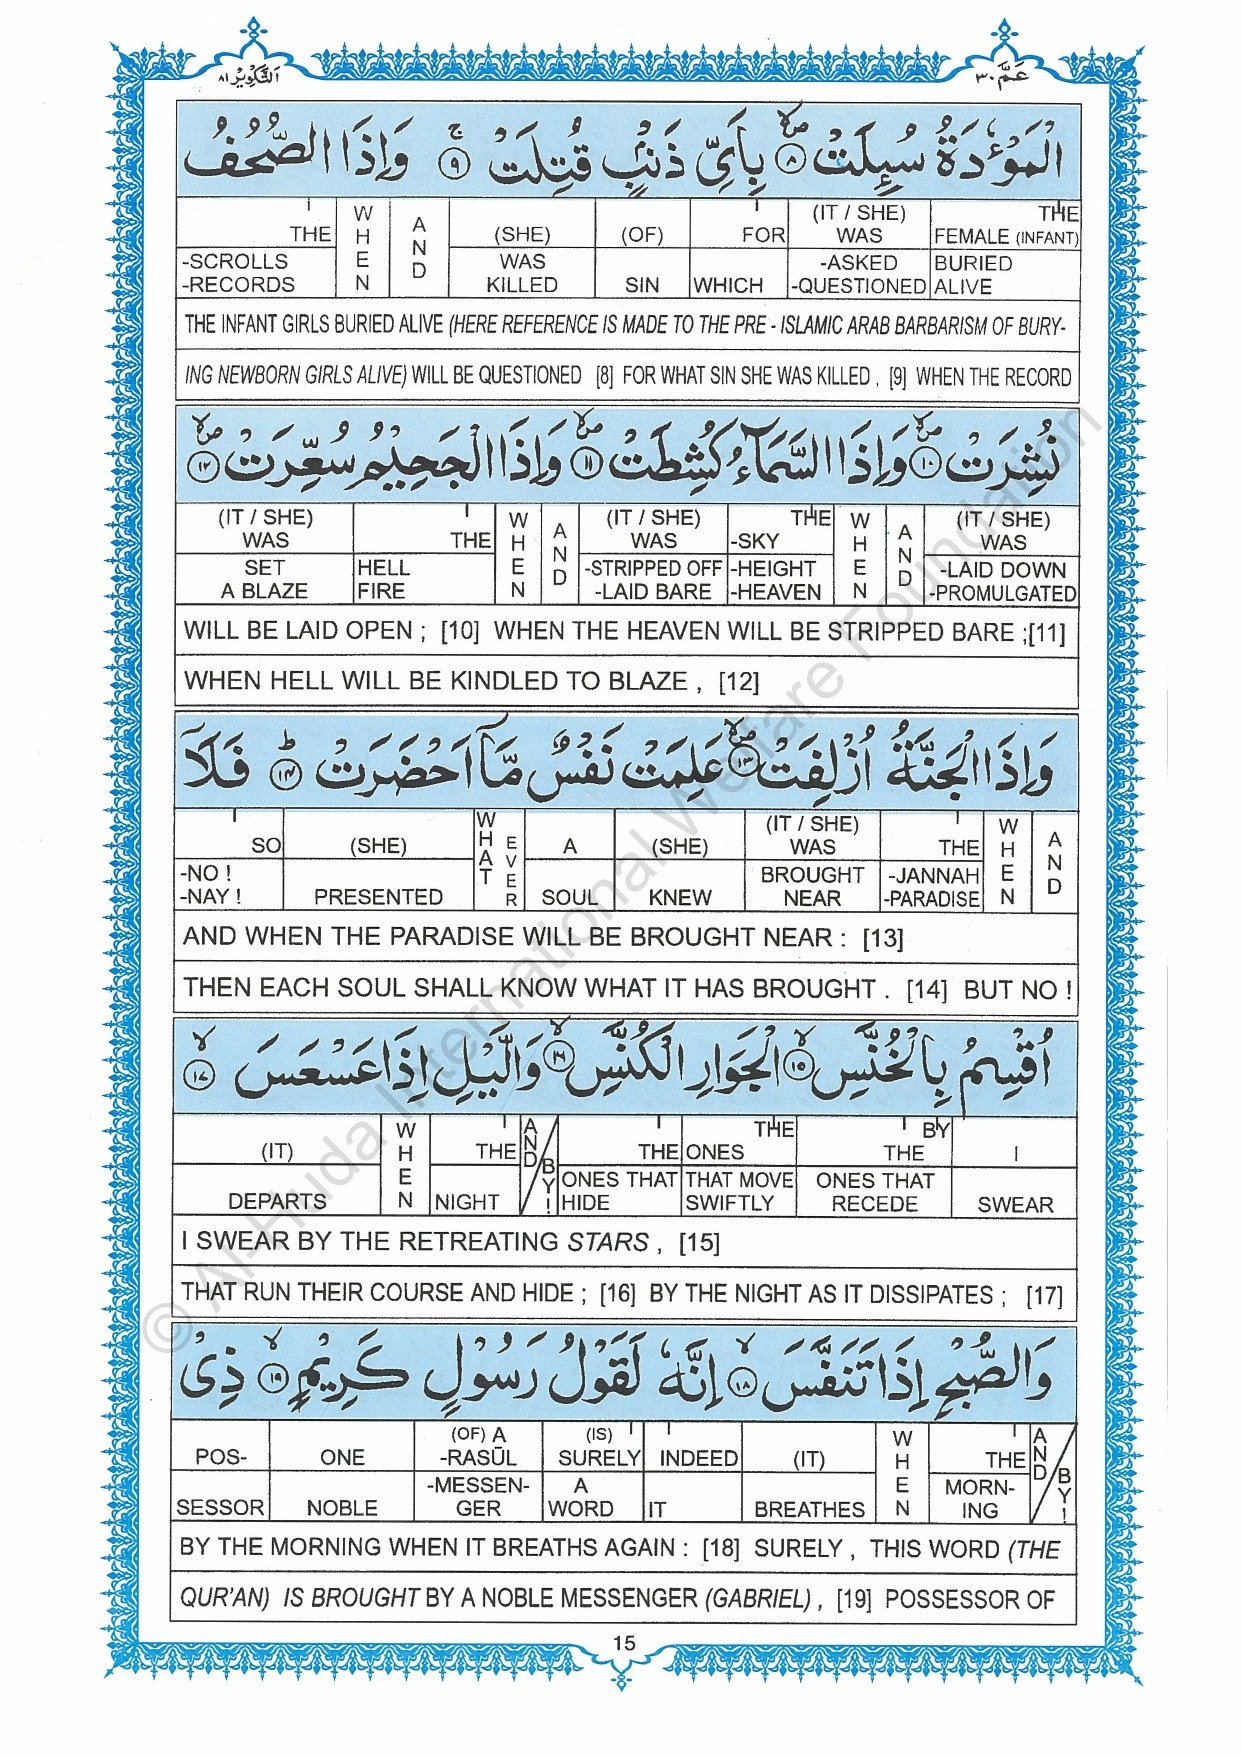 التَّكْوِيْر ٨١
عَمَّ ٣٠
الْمَوْءٗدَةُ سُىِٕلَتْ ۪ۙ ٨ بِاَىِّ ذَنْۢبٍ قُتِلَتْ ۚ ٩ وَاِذَا الصُّحُفُ
THE WHEN AND (SHE) (OF) FOR (IT / SHE) WAS THE FEMALE (INFANT)
-SCROLLS -RECORDS WAS KILLED SIN WHICH -ASKED -QUESTIONED BURIED ALIVE
THE INFANT GIRLS BURIED ALIVE (HERE REFERENCE IS MADE TO THE PRE - ISLAMIC ARAB BARBARISM OF BURY-
ING NEWBORN GIRLS ALIVE) WILL BE QUESTIONED [8] FOR WHAT SIN SHE WAS KILLED , [9] WHEN THE RECORD
نُشِرَتْ ۪ۙ ١٠ وَاِذَا السَّمَآءُ كُشِطَتْ ۪ۙ ١١ وَاِذَا الْجَحِيْمُ سُعِّرَتْ ۪ۙ ١٢
(IT / SHE) WAS THE WHEN AND (IT / SHE) WAS THE -SKY WHEN AND (IT / SHE) WAS
SET A BLAZE HELL FIRE -STRIPPED OFF -LAID BARE -HEIGHT -HEAVEN -LAID DOWN -PROMULGATED
WILL BE LAID OPEN ; [10] WHEN THE HEAVEN WILL BE STRIPPED BARE ;[11]
WHEN HELL WILL BE KINDLED TO BLAZE , [12]
وَاِذَا الْجَنَّةُ اُزْلِفَتْ ۪ۙ ١٣ عَلِمَتْ نَفْسٌ مَّاۤ اَحْضَرَتْ ؕ ١٤ فَلَاۤ
SO (SHE) WHAT EVER A (SHE) (IT / SHE) WAS THE WHEN AND
-NO ! -NAY ! PRESENTED SOUL KNEW BROUGHT NEAR -JANNAH -PARADISE
AND WHEN THE PARADISE WILL BE BROUGHT NEAR : [13]
THEN EACH SOUL SHALL KNOW WHAT IT HAS BROUGHT . [14] BUT NO !
اُقْسِمُ بِالْخُنَّسِ ۙ ١٥ الْجَوَارِ الْكُنَّسِ ۙ ١٦ وَالَّيْلِ اِذَا عَسْعَسَ ۙ ١٧
(IT) WHEN THE AND/BY! THE THE ONES BY THE I
DEPARTS NIGHT ONES THAT HIDE THAT MOVE SWIFTLY ONES THAT RECEDE SWEAR
I SWEAR BY THE RETREATING STARS , [15]
THAT RUN THEIR COURSE AND HIDE ; [16] BY THE NIGHT AS IT DISSIPATES ; [17]
وَالصُّبْحِ اِذَا تَنَفَّسَ ۙ ١٨ اِنَّهٗ لَقَوْلُ رَسُوْلٍ كَرِيْمٍ ۙ ١٩ ذِىْ
POS- ONE (OF) A -RASŪL (IS) SURELY INDEED (IT) WHEN THE AND/BY!
SESSOR NOBLE -MESSEN- GER A WORD IT BREATHES MORN- ING
BY THE MORNING WHEN IT BREATHS AGAIN : [18] SURELY , THIS WORD (THE
QUR'AN) IS BROUGHT BY A NOBLE MESSENGER (GABRIEL) , [19] POSSESSOR OF
15
© Al-Huda International Welfare Foundation